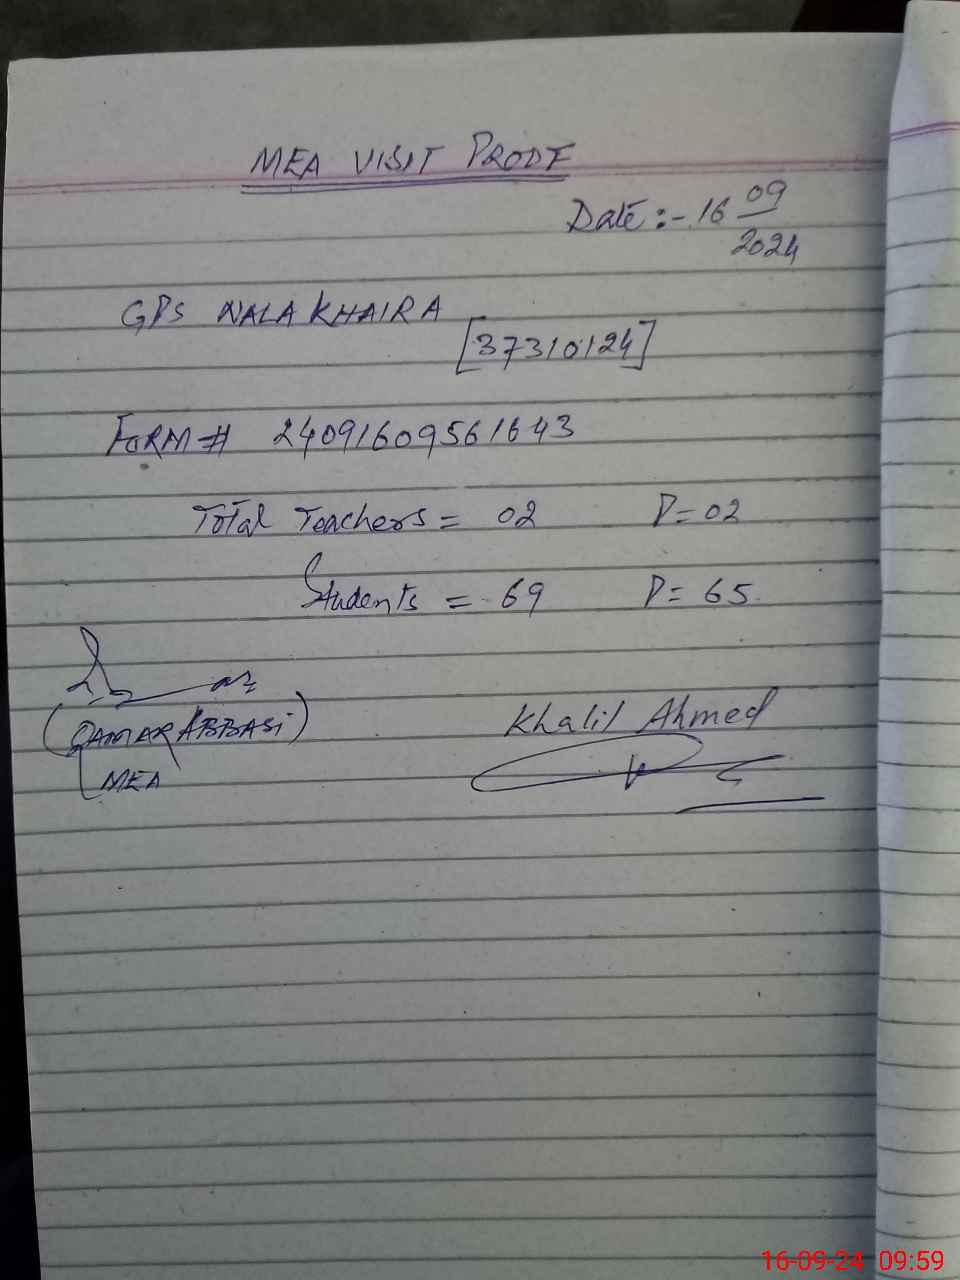 MEA VISIT PROOF
Date:- 16 09/2024
GPS NALA KHAIRA
[37310124]
FORM # 24091609561643
Total Teachers = 02 P= 02
Students = 69 P= 65
(QAMAR ABBASI)
MEA
Khalil Ahmed
16-09-24 09:59